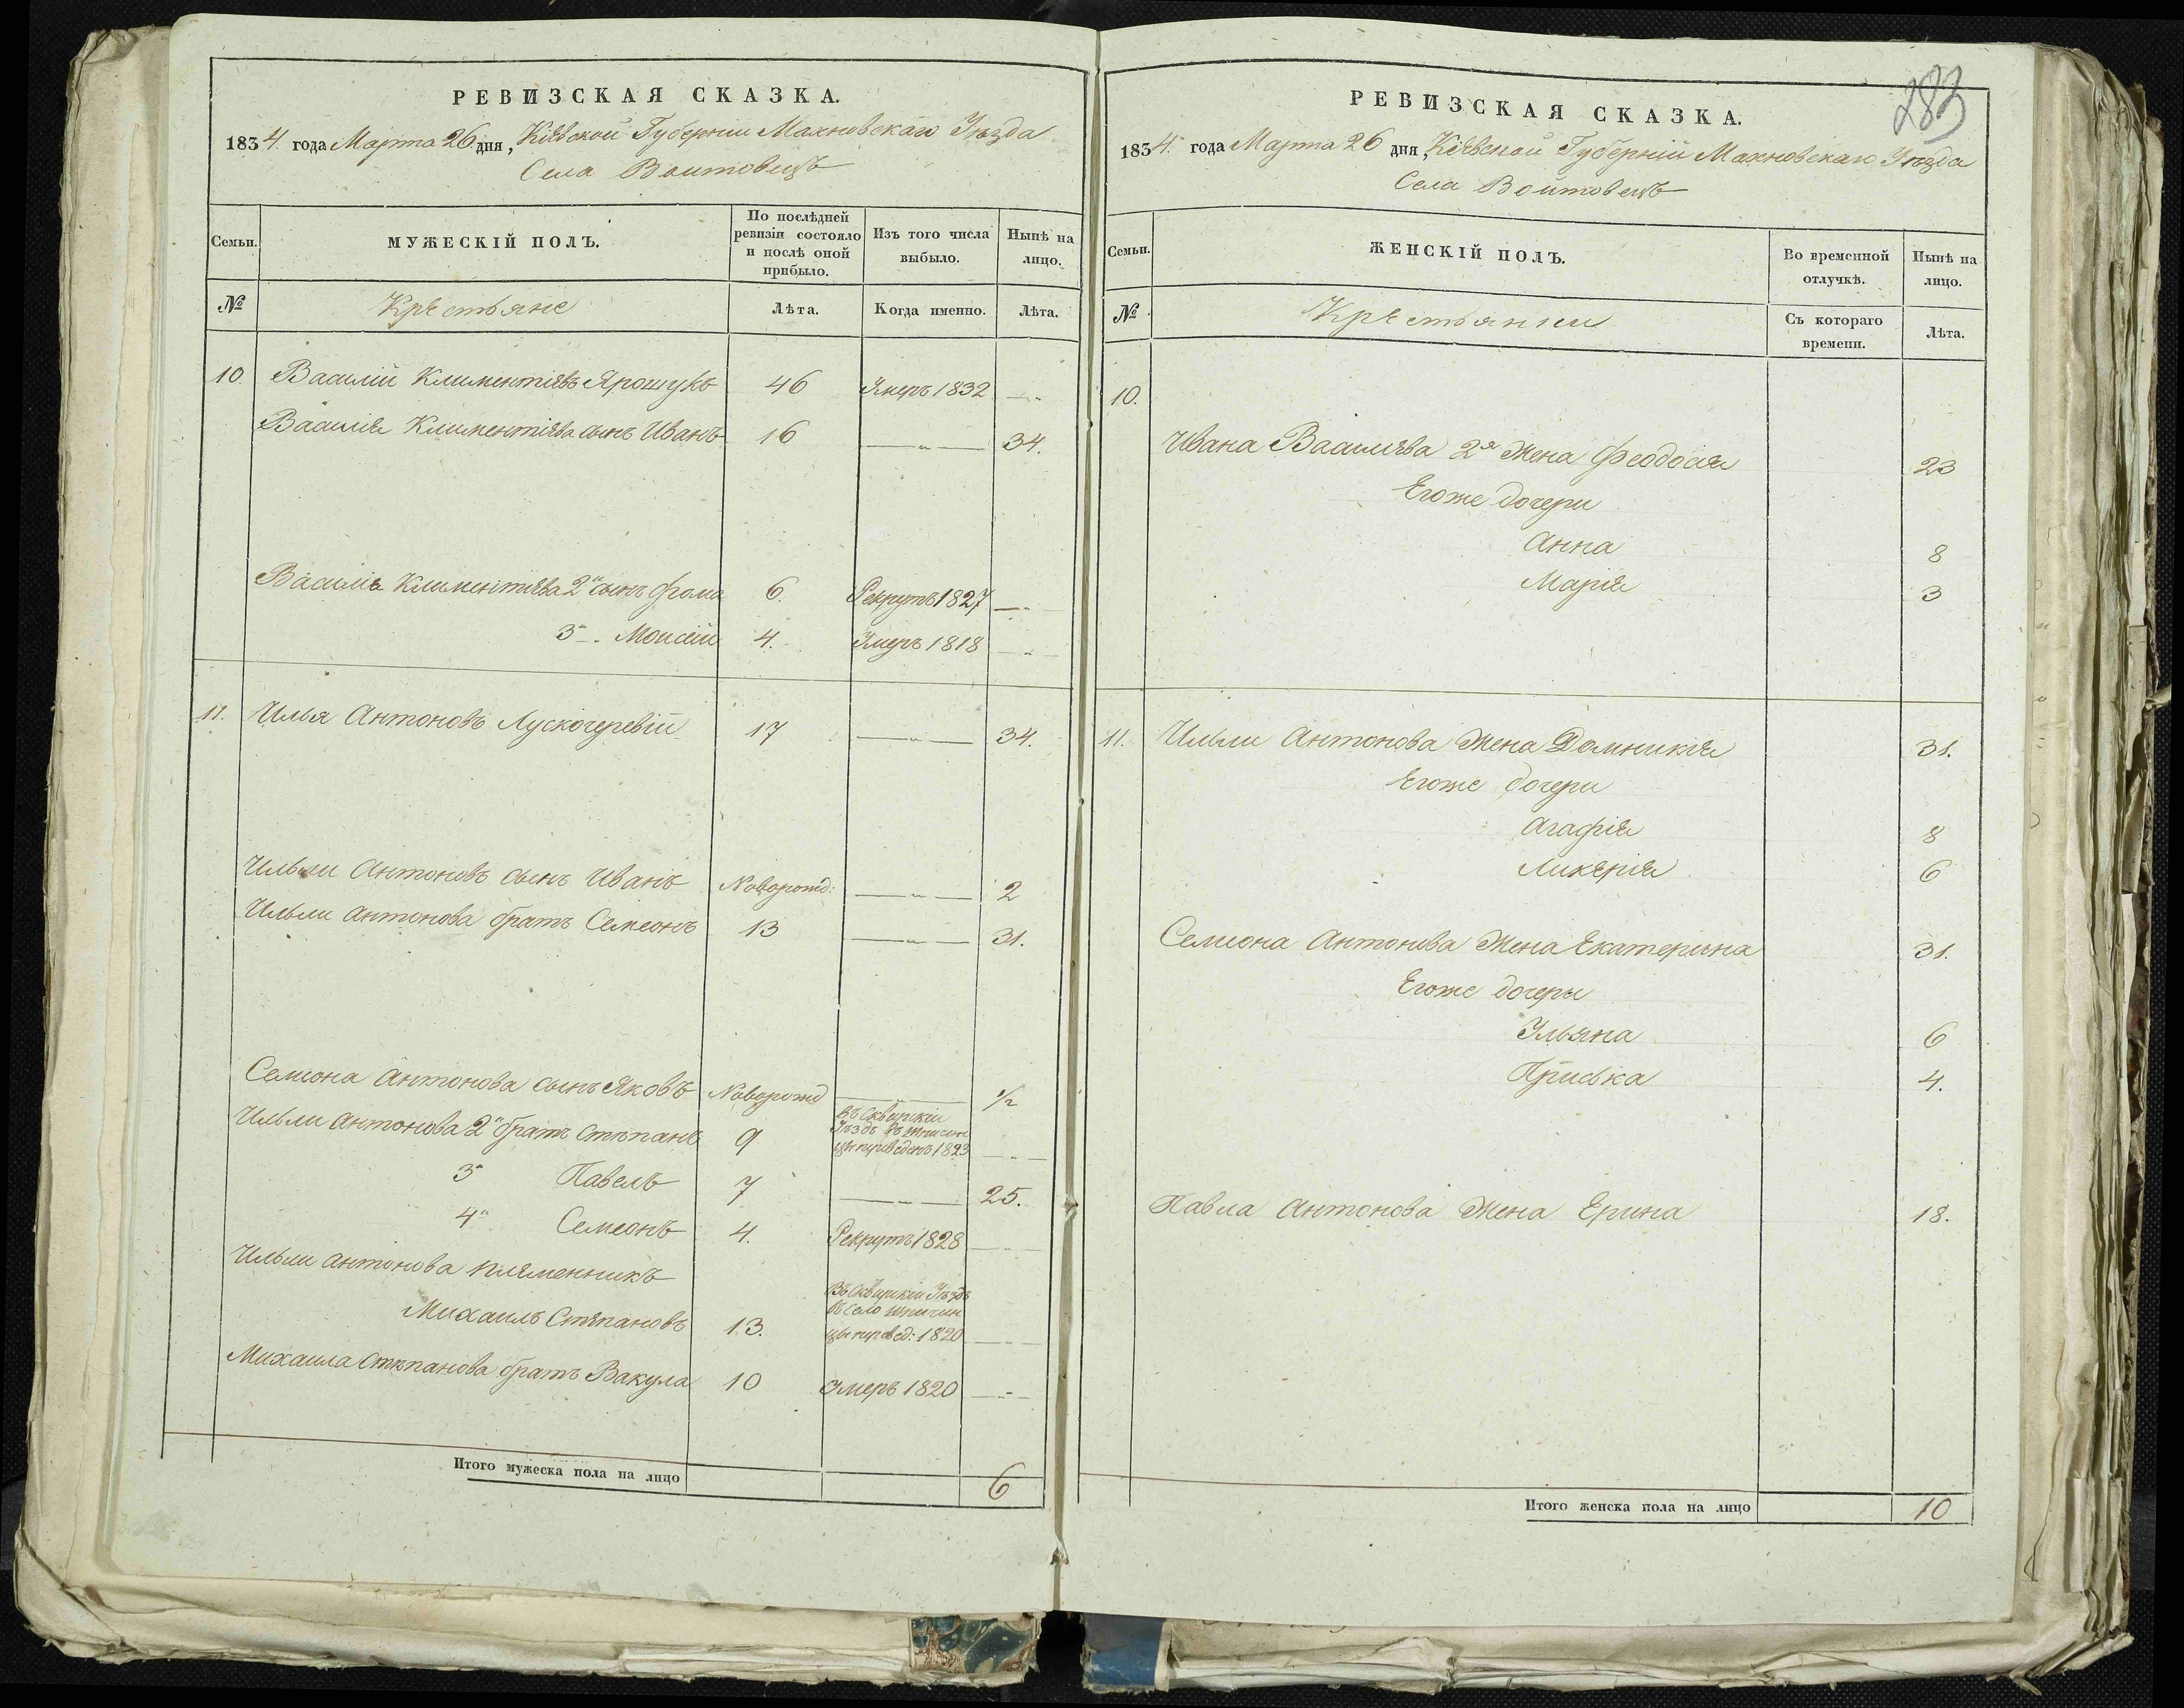 РЕВИЗСКАЯ СКАЗКА.
1834. года Марта 26. дня, Кіевской Губерніи Махновскаго Уѣзда
Села Воитовецъ
Семьи.
МУЖЕСКІЙ ПОЛЪ.
По послѣдней ревизіи состояло и послѣ оной прибыло.
Изъ того числа выбыло.
Нынѣ на лицо.
№
Крестьяне
Лѣта.
Когда именно.
Лѣта.
10. Василій Климентіевъ Ярощукъ 46 Умеръ 1832 —„—
Василія Климентіева сынъ Иванъ 16 —„— 34.
Василія Климентіева 2й сынъ Фома 6. Рекрутъ 1827 —„—
3й. Моисей 4. Умеръ 1818 —„—
11. Илья Антоновъ Лускочеревій 17 —„— 34.
Ильи Антоновъ сынъ Иванъ Новорожд: —„— 2
Ильи Антонова братъ Семеонъ 13 —„— 31.
Семиона Антонова сынъ Яковъ Новорожд — 1/2
Ильи Антонова 2й братъ Степанъ 9 въ Сквирскій
Уѣздъ въ
цы переведенъ 1823 —„—
3й Павелъ 7 —„— 25.
4й Семеонъ 4. Рекрутъ 1828 —„—
Ильи Антонова племенникъ
Михаилъ Степановъ 13. Въ Сквирскій Уѣздъ
въ село Шпичин
цы перевед: 1820 —„—
Михаила Степанова братъ Вакула 10 Умеръ 1820 —„—
Итого мужеска пола на лицо 6
283
РЕВИЗСКАЯ СКАЗКА.
1834. года Марта 26 дня, Кіевской Губерніи Махновскаго Уѣзда
Села Войтовецъ
Семьи.
ЖЕНСКІЙ ПОЛЪ.
Во временной отлучкѣ.
Нынѣ на лицо.
№
Крестьянки
Съ котораго времени.
Лѣта.
10.
Ивана Василиева 2я Жена Феодосія 23
Егоже дочери
Анна 8
Марія 3
11. Ильи Антонова Жена Домникія 31.
Егоже дочери
Агафія 8
Ликерія 6
Семиона Антонова Жена Екатерина 31.
Егоже дочери
Ульяна 6
Приська 4.
Павла Антонова Жена Ерина 18.
Итого женска пола на лицо 10